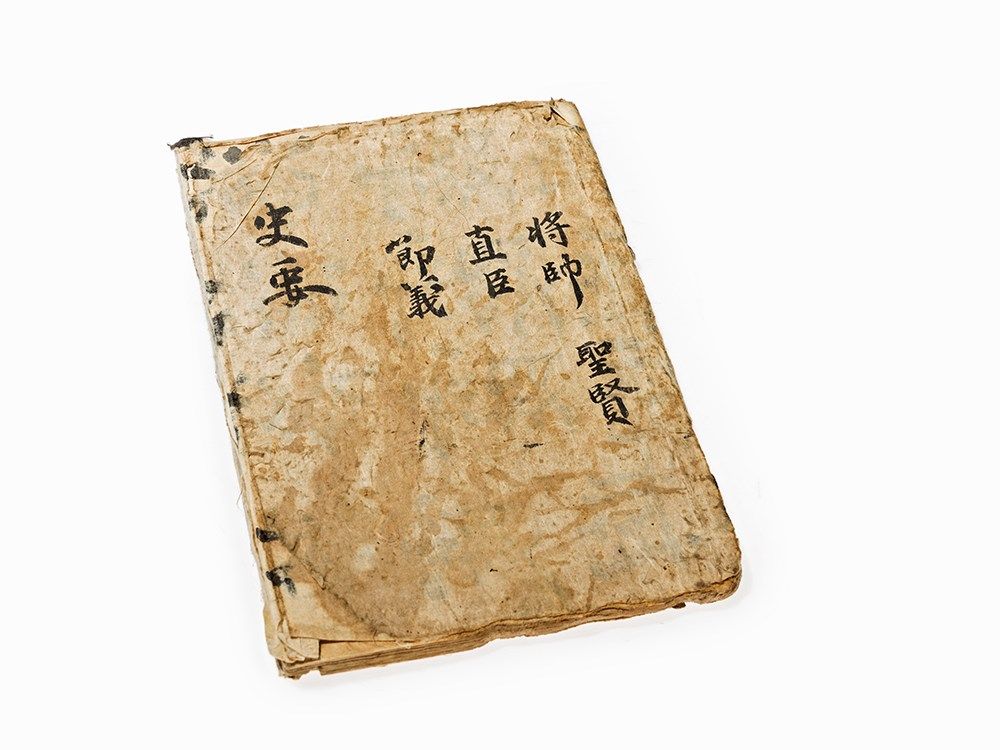 將帥 聖賢
直臣
節義
史要